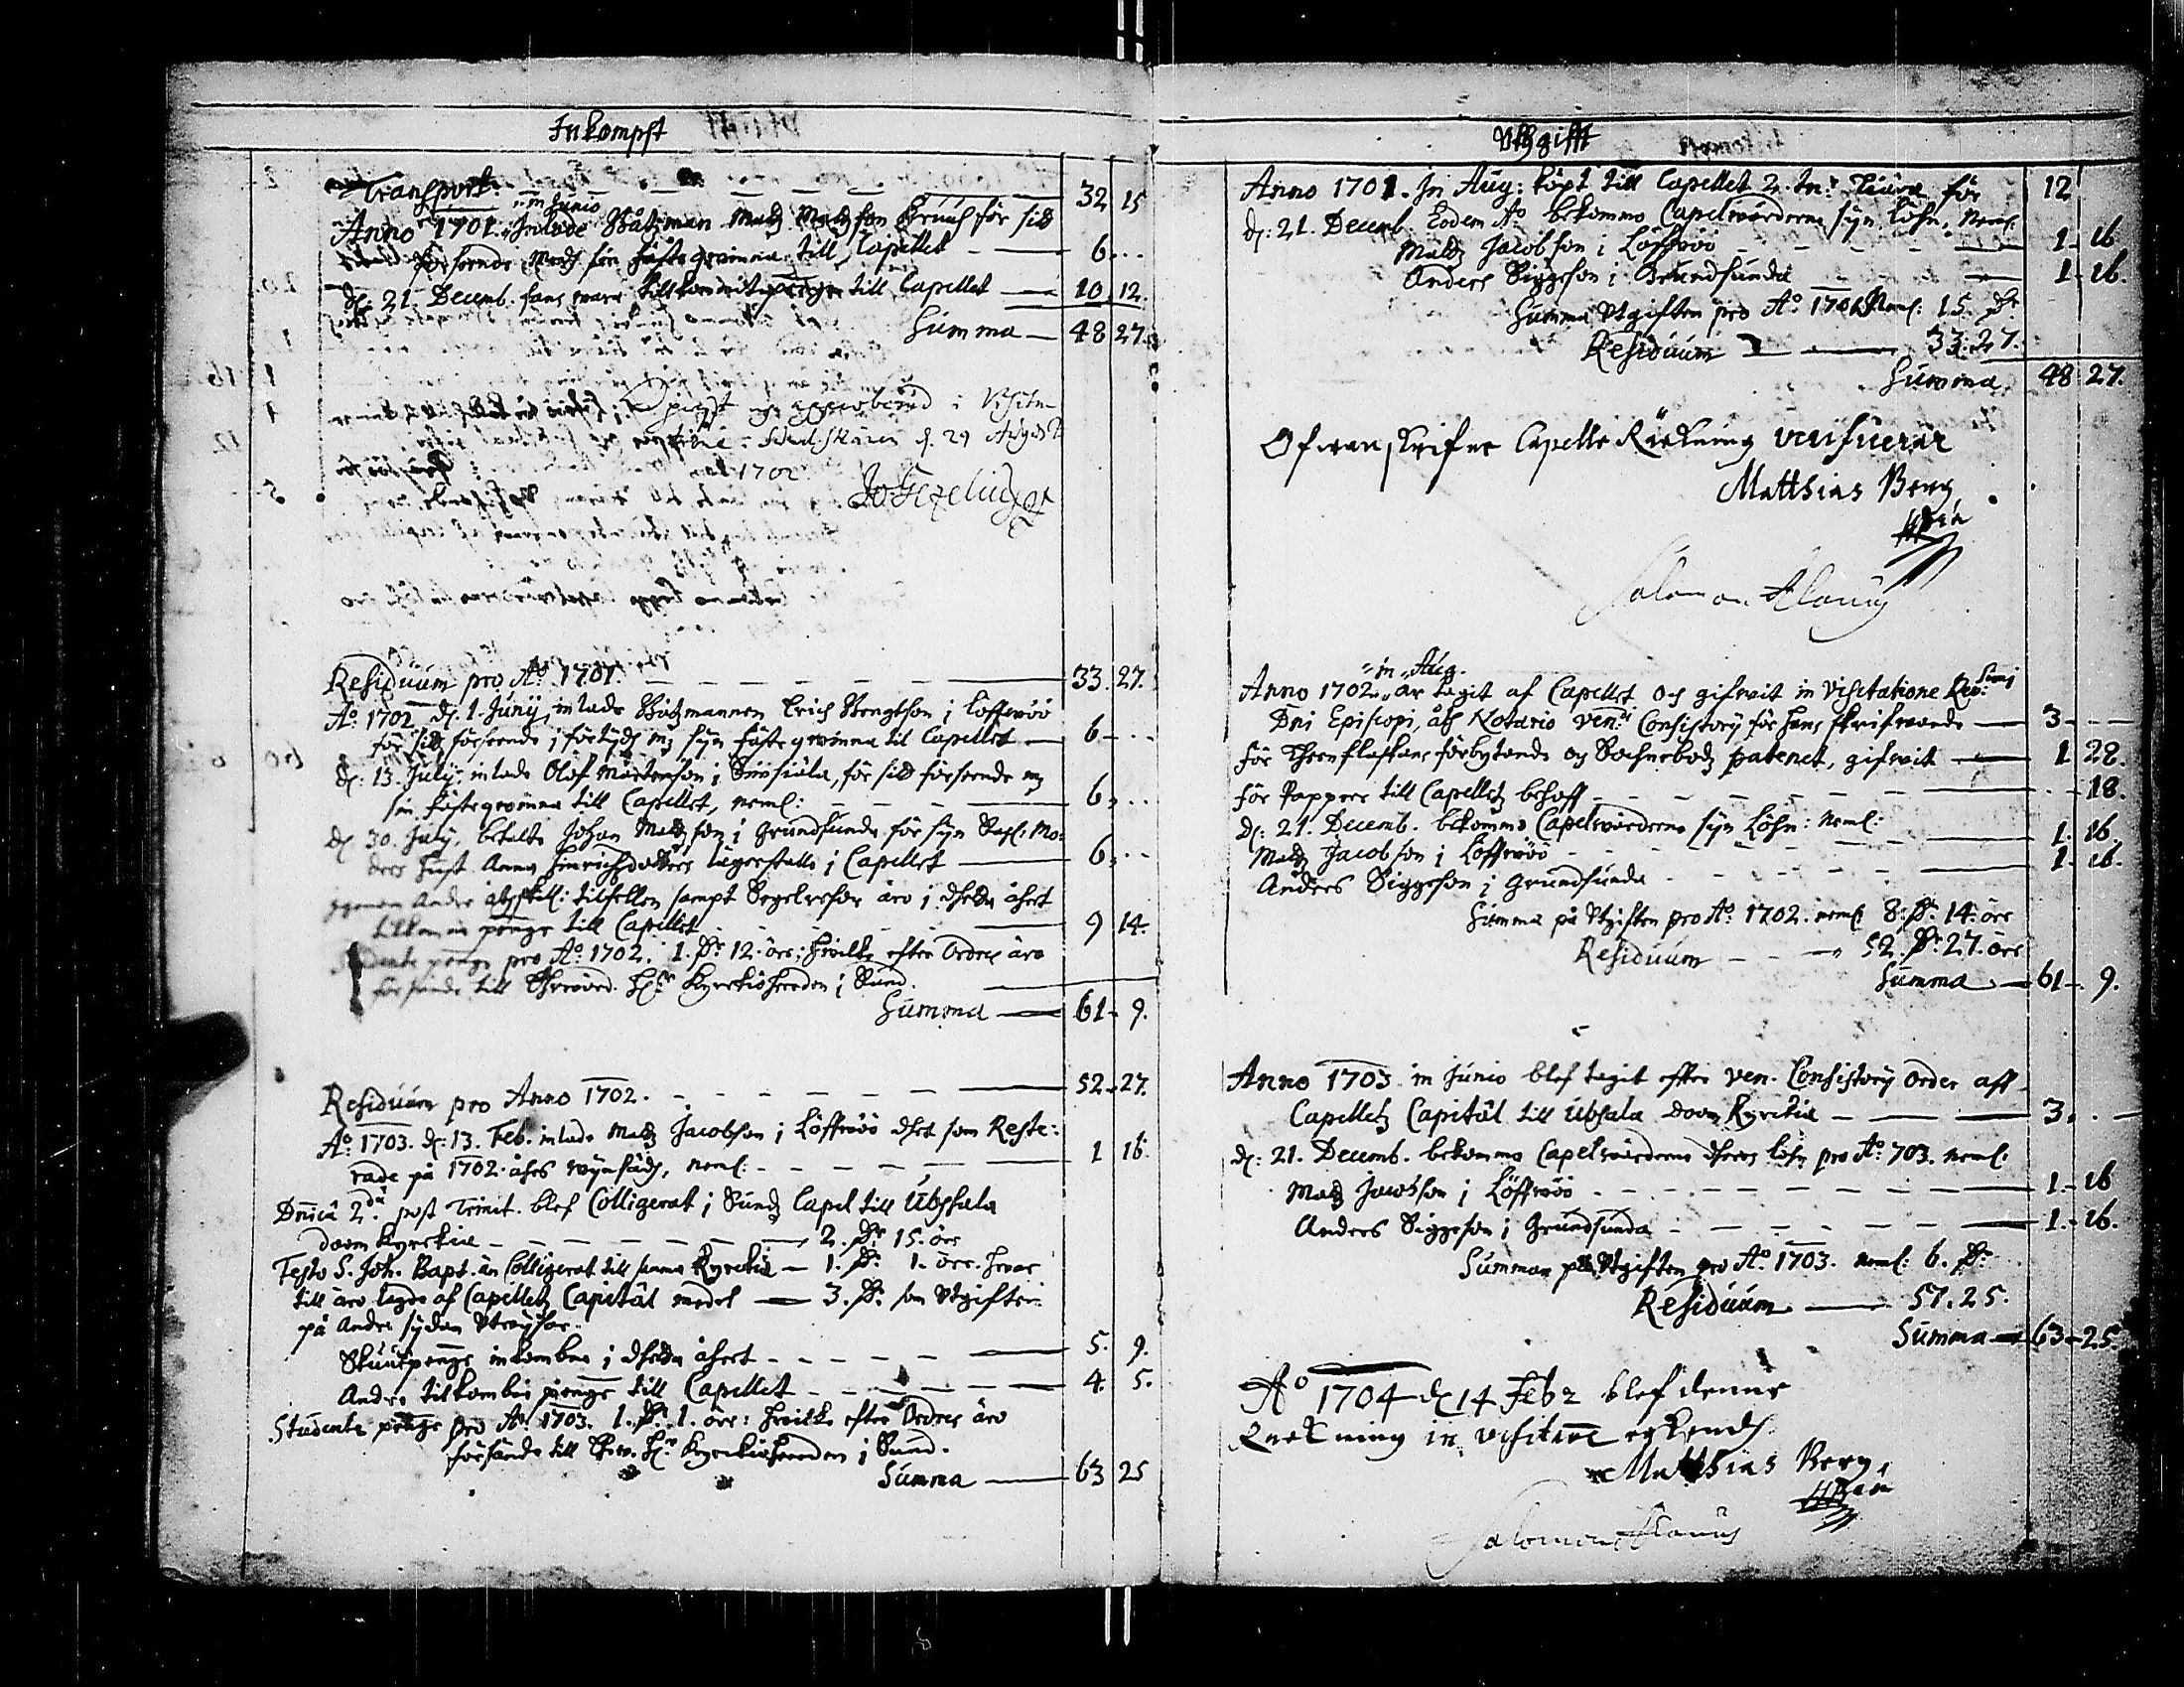 Inkompst
Transport 32 15
in Junio
Anno 1701. Inlade Båtzman Matz Matzson Kruus för sitt
förseende medh sin fästeqwinna till Capellet 6
d: 21. Decemb. fans wara tillkommit penge till Capellet 10 12.
Summa 48 27.
och approberad i Visita-
d. 29 August
1702.
Jo Gezelius
Residuum pro Ao 1701. 33. 27.
Ao 1702 d. 1. Junij, inlade Båtzmannen Erich Bengtson i Löffwöö
för sitt förseende i förtijdh m; syn fästeqwinna til Capellet 6
d: 13. Julij inlade Olof Mårtenson i , för sitt förseende m;
sin fästeqwinna till Capellet, neml: 6
d: 30. Julij. betalte Johan Matzson i Grundsunda för syn Sal: Mo-
ders hust. Anna Hinrichzdotters lägerstelle i Capellet 6
genom Andre tilfellen sampt Segelresor äro i dhetta åhret
tilkomne penge till Capellet 9 14.
penge pro Ao 1702. 1. Dr 12. öre; hwilke efter Ordre äro
försände till Kyrkioherden i Sund.
Summa 61 9.
Residuum pro Anno 1702. 52 27.
Ao 1703. d: 13. Feb. inlade Matz Jacobson i Löffwöö dhet som Reste-
rade på 1702 åhrs , neml: 1 16.
Dnica 2da post Trinit. blef Colligerat i Sundz Capel till Ubsala
doom kyrckia 2. Dr 15. öre
Festo S. Joh. Bapt. än Colligerat till samma Kyrckia 1. Dr 1. öre. hwar
till äro tagne af Capelletz Capital medel 3. Dr som Utgiften
på Andre sydan Utwijsar.
penge inkombne i dhetta åhret 5. 9.
Andre tilkombne penge till Capellet 4. 5.
Studente penge pro Ao 1703. 1. Dr 1. öre: hwilke efter Ordres äro
försände till Kyrkioherden i Sund.
Summa 63 25
Uthgifft
Anno 1701. In Aug: köpt till Capellet 2. tnr Tiära för 12
d: 21. Decemb. Eodem Ao bekommo Capelwärderne syn Löhn, Neml.
Matz Jacobson i Löffwöö 1 16
Anders Siggeson i Grundsunda 1 16.
Summa Utgiften pro Ao 1701 Neml: 15. Dr
Residuum 33: 27.
Summa 48 27.
Ofwanskrifne Capells Räckning
Matthias Berg
Salomon Alanus
in Aug.
Anno 1702 är tagit af Capellet och gifwit in Visitatione Rev:
Dni Episcopi, åth Notario Ven: Consistorij för hans skrifwande 3
för förbytande och Sochnebodz patenet, gifwit 1 28.
för Papper till Capelletz behoff 18.
d: 21. Decemb. bekommo Capelwärderne syn Löhn: Neml:
Matz Jacobson i Löffwöö 1. 16.
Anders Siggeson i Grundsunda 1. 16.
Summa på Utgiften pro Ao 1702. neml: 8. Dr 14. öre
Residuum 52. Dr 27. öre
Summa 61 9.
Anno 1703 in Junio blef tagit efter Ven. Consistorij Order aff
Capelletz Capital till Ubsala doom Kyrckia 3.
d: 21. Decemb. bekommo Capelwärderne dheres löhn pro Ao 703. neml.
Matz Jacobson i Löffwöö 1. 16
Anders Siggeson i Grundsunda 1. 16.
Summan på Utgiften pro Ao 1703. neml: 6. Dr
Residuum 57. 25.
Summa 63 25.
Ao 1704 d 14 Feb blef denne
Räckning in visitat
Matthias Berg
Salomon Alanus